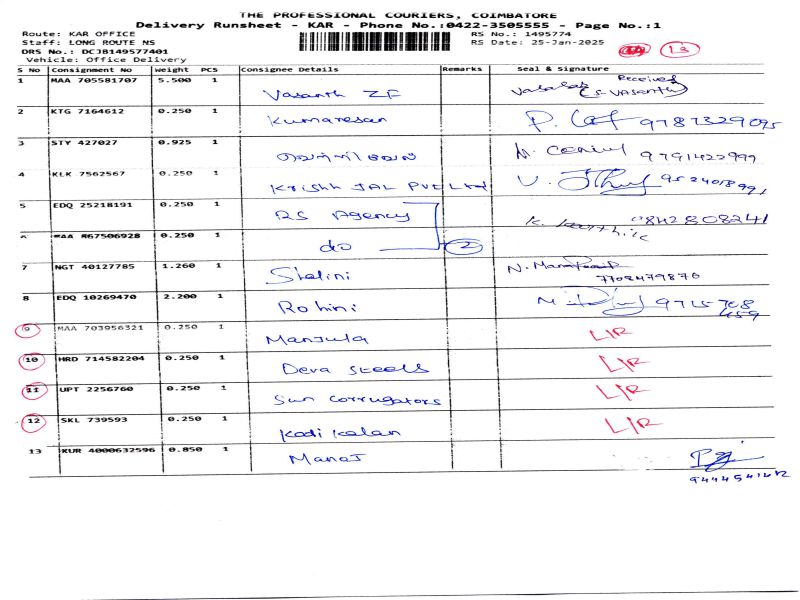 THE PROFESSIONAL COURIERS, COIMBATORE
Delivery Runsheet - KAR - Phone No.:0422-3505555 - Page No.:1
Route: KAR OFFICE RS No.: 1495774
Staff: LONG ROUTE NS RS Date: 25-Jan-2025 13
DRS No.: DCJB149577401
Vehicle: Office Delivery
S No Consignment No Weight PCS Consignee Details Remarks Seal & Signature
1 MAA 705581707 5.500 1 Vasanth ZF Received (S VASANTH)
2 KTG 7164612 0.250 1 Kumaresan 9787329095
3 STY 427027 0.925 1 வெற்றிவேல் 9791422999
4 KLK 7562567 0.250 1 Krishh JAL PVT Ltd 9524018991
5 EDQ 25218191 0.250 1 RS Agency K. Karthik 9842808241
6 MAA M67506928 0.250 1 do 2
7 NGT 40127785 1.260 1 Shalini 7708479876
8 EDQ 10269470 2.200 1 Rohini 9715708459
9 MAA 703956321 0.250 1 Manjula L/R
10 HRD 714582204 0.250 1 Deva Steels L/R
11 UPT 2256760 0.250 1 Sun corrugators L/R
12 SKL 739593 0.250 1 Kadikalan L/R
13 KUR 4000632596 0.850 1 Manoj